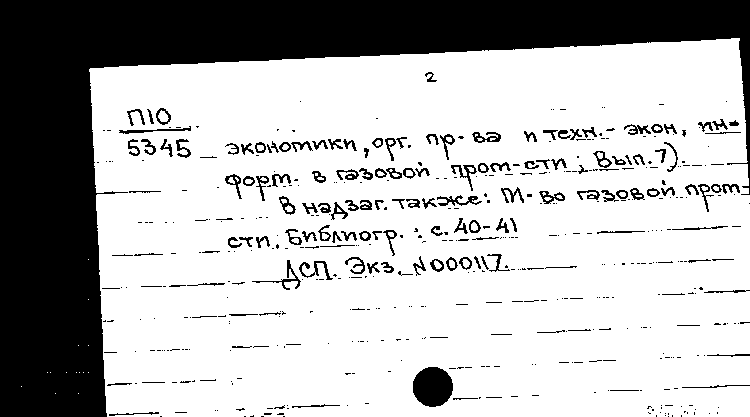 2
П10
5345 экономики, орг. пр-ва и техн.- экон, ин-
форм. в газовой пром-сти; Вып. 7).
В надзаг. также: М-во газовой пром-
сти. Библиогр.: с. 40-41
ДСП. Экз. №000117.